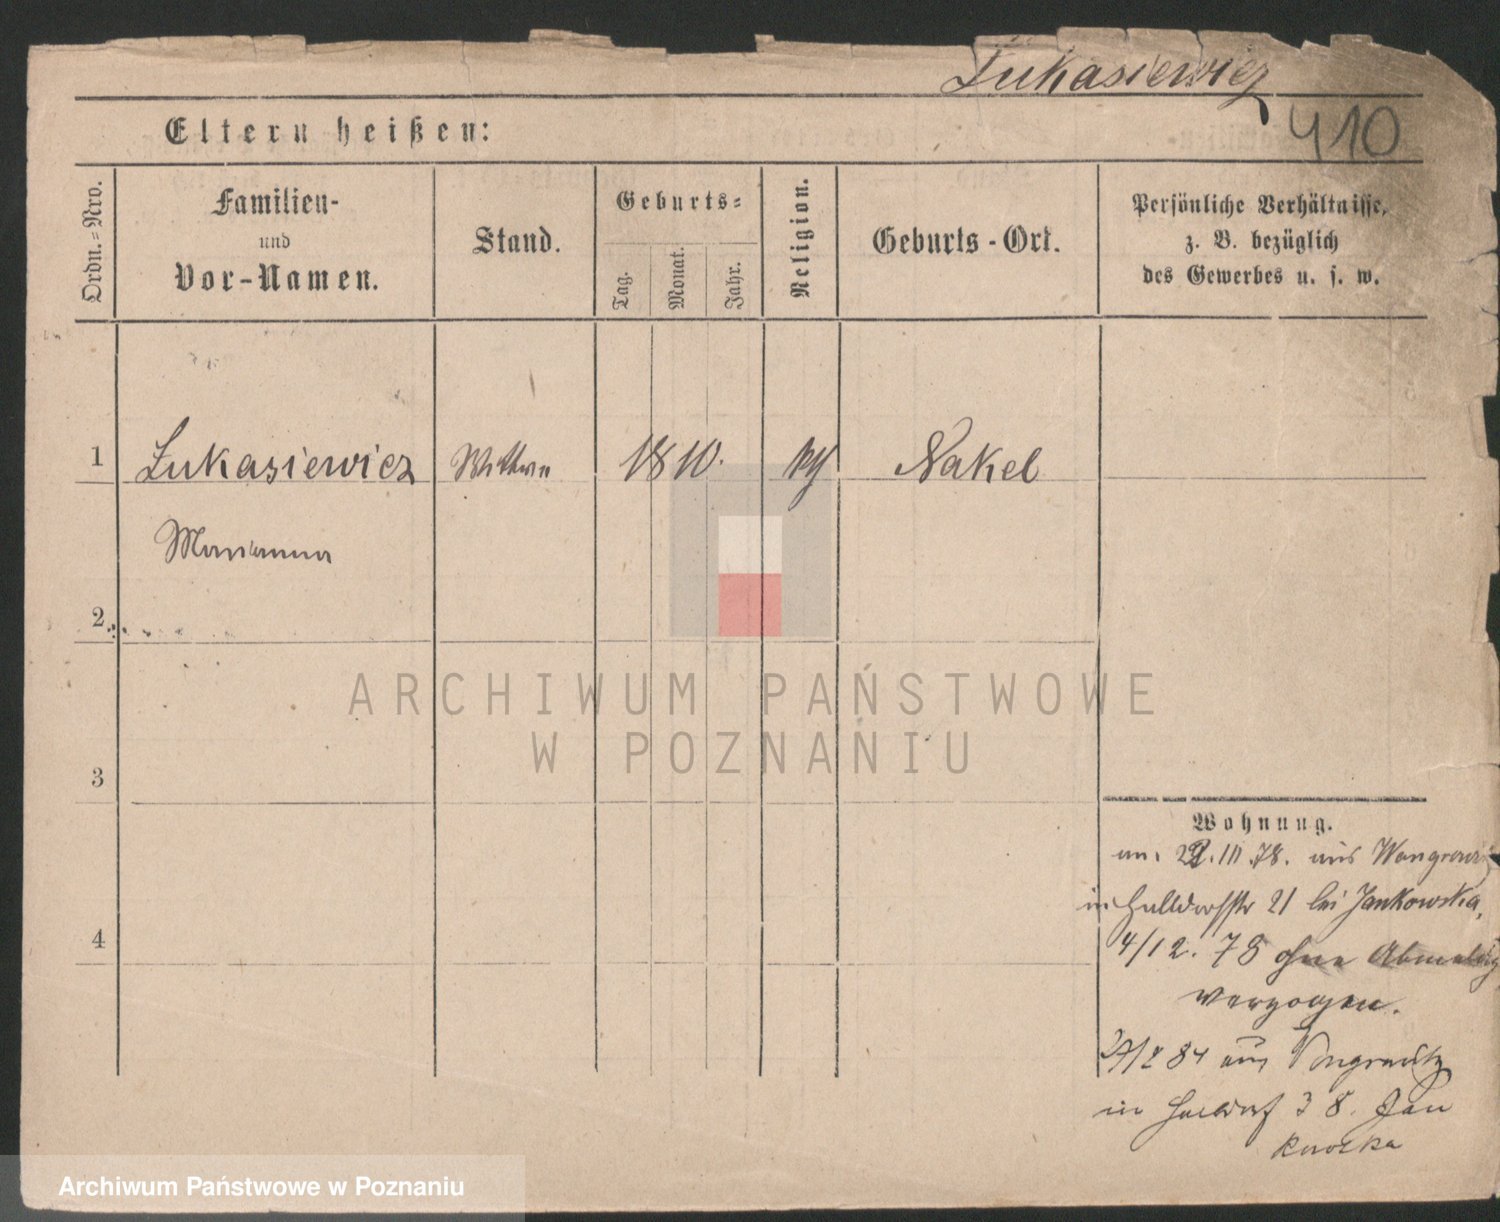 Lukasiewicz
410
Eltern heißen:
Ordn.-Nro.
Familien-
und
Vor-Namen.
Stand.
Geburts-
Tag.
Monat.
Jahr.
Religion.
Geburts-Ort.
Persönliche Verhältnisse,
z. B. bezüglich
des Gewerbes u. s. w.
1 Lukasiewicz Wittwe 1810. Nakel
Marianna
2
3
4
ARCHIWUM PAŃSTWOWE
W POZNANIU
Wohnung.
III.78. aus Wongrowitz
in Halldorfstr 21 bei Jankowska,
4/12. 78 ohne Abmeldung
verzogen.
84 aus Wongrowitz
in Halldorf 38. Jan
kowska
Archiwum Państwowe w Poznaniu